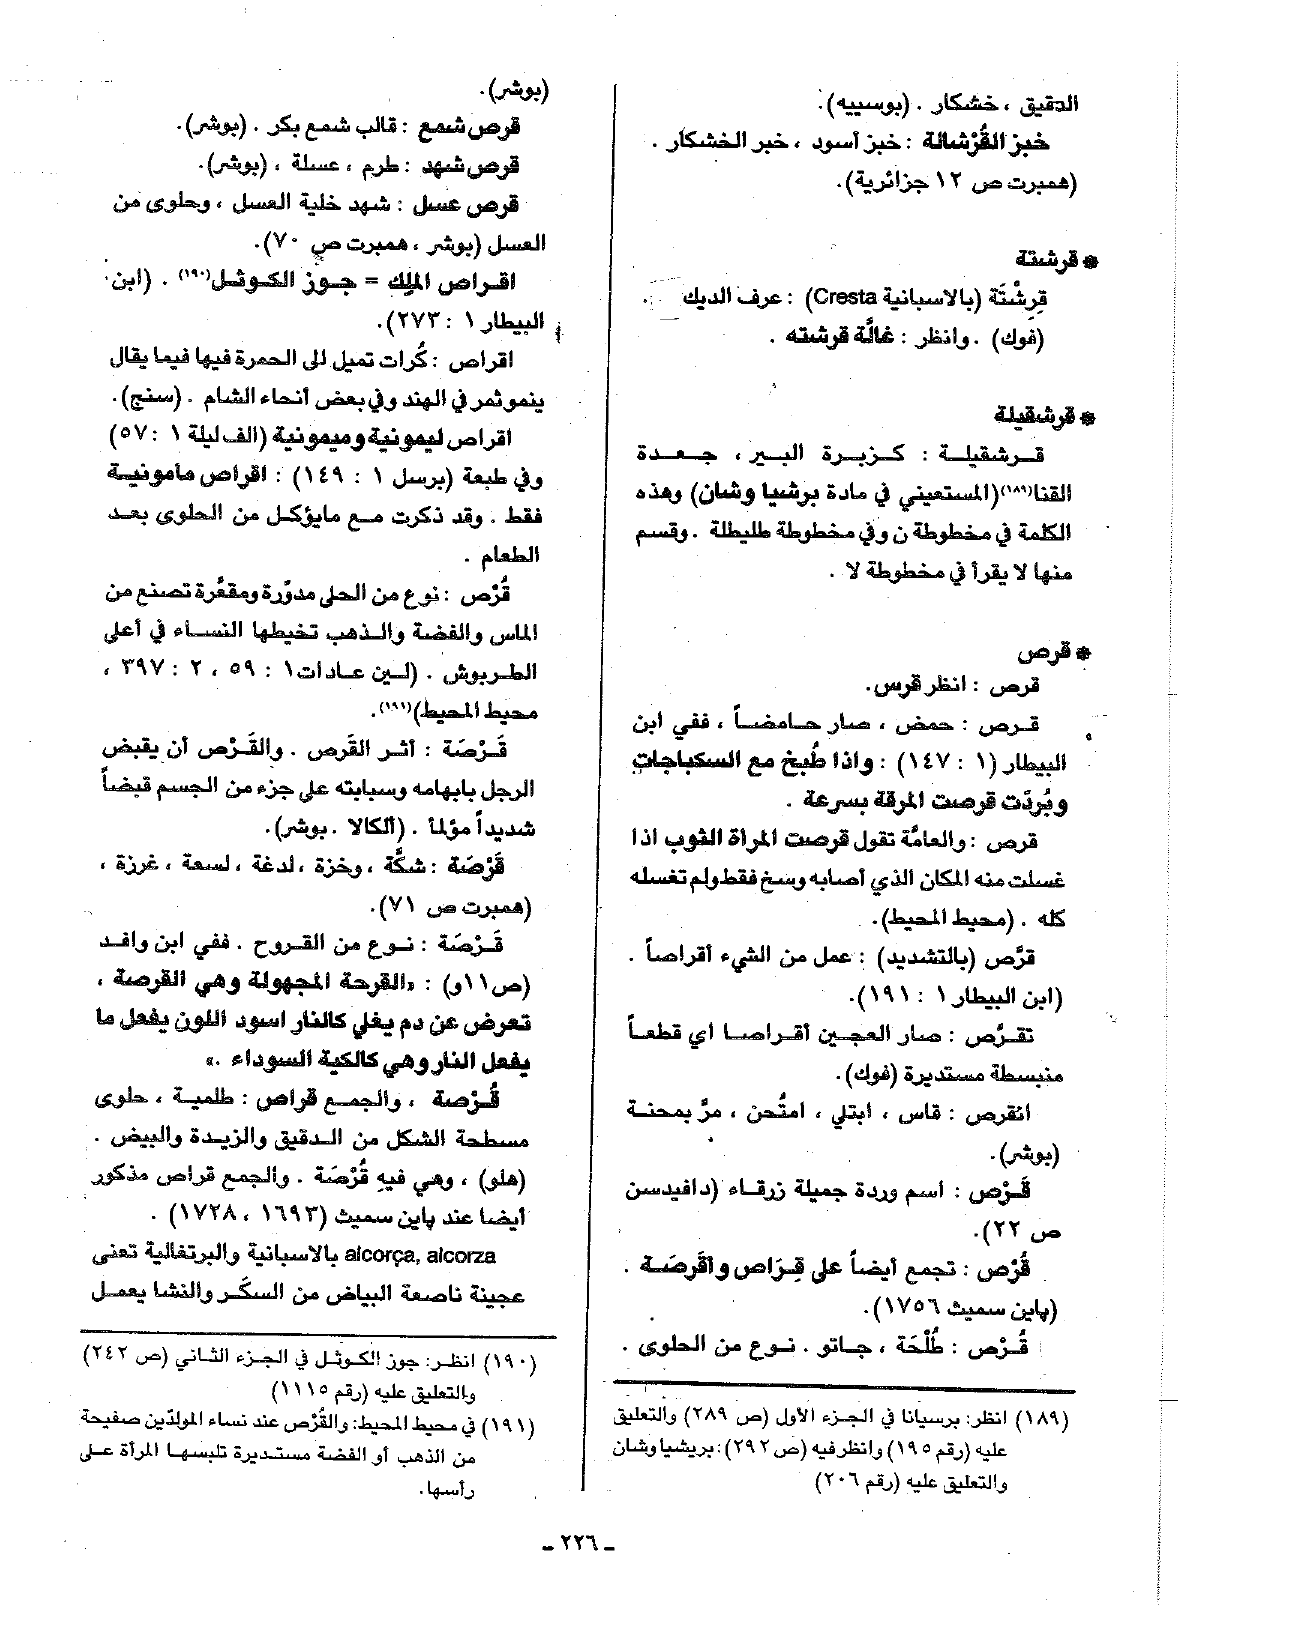 الدقيق ، خشكار . (بوسييه).
خبز القُرْشالة : خبز أسود ، خبر الخشكار .
(همبرت ص ١٢ جزائرية).
* قرشتة
قِرِشْتَة (بالاسبانية Cresta) : عرف الديك .
(فوك) . وانظر : غالَّة قرشته .
* قرشقيلة
قرشقيلة : كزبرة البير ، جعدة
القنا(١٨٩)(المستعيني في مادة برشيا وشان) وهذه
الكلمة في مخطوطة ن وفي مخطوطة طليطلة . وقسم
منها لا يقرأ في مخطوطة لا .
* قرص
قرص : انظر قرس.
قرص : حمض ، صار حامضاً ، ففي ابن
البيطار (١ : ١٤٧) : واذا طُبخ مع السكباجات
وبُردَت قرصت المرقة بسرعة .
قرص : والعامَّة تقول قرصت المرأة الثوب اذا
غسلت منه المكان الذي أصابه وسخ فقط ولم تغسله
كله . (محيط المحيط).
قرَّص (بالتشديد) : عمل من الشيء أقراصاً .
(ابن البيطار ١ : ١٩١).
تقرَّص : صار العجين أقراصا اي قطعاً
منبسطة مستديرة (فوك).
انقرص : قاس ، ابتلي ، امتُحن ، مرَّ بمحنة
(بوشر).
قَرْص : أسم وردة جميلة زرقاء (دافيدسن
ص ٢٢).
قُرْص : تجمع أيضاً على قِرَاص وأقَرصَة .
(باين سميث ١٧٥٦).
قُرْص : طُلْحَة ، جاتو . نوع من الحلوى .
(١٨٩) انظر: برسيانا في الجزء الأول (ص ٢٨٩) والتعليق
عليه (رقم ١٩٥) وانظر فيه (ص ٢٩٢): بريشياوشان
والتعليق عليه (رقم ٢٠٦)
(بوشر).
قرص شمع : قالب شمع بكر . (بوشر).
قرص شهد : طرم ، عسلة ، (بوشر).
قرص عسل : شهد خلية العسل ، وحلوى من
العسل (بوشر ، همبرت ص ٧٠).
اقراص الملِك = جوز الكوثل(١٩٠) . (ابن
البيطار ١ : ٢٧٣).
اقراص : كُرات تميل الى الحمرة فيها فيما يقال
ينمو ثمر في الهند وفي بعض أنحاء الشام . (سنج).
اقراص ليمونية وميمونية (الف ليلة ١ : ٥٧)
وفي طبعة (برسل ١ : ١٤٩) : اقراص مأمونية
فقط . وقد ذكرت مع مايؤكل من الحلوى بعد
الطعام .
قُرْص : نوع من الحلى مدوّرة ومقعَّرة تصنع من
الماس والفضة والذهب تخيطها النساء في أعلى
الطربوش . (لين عادات ١ : ٥٩ ، ٢ : ٣٩٧ ،
محيط المحيط)(١٩١).
قَرْصَة : أثر القَرص . والقَرْص أن يقبض
الرجل بابهامه وسبابته على جزء من الجسم قبضاً
شديداً مؤلماً . (ألكالا . بوشر).
قَرْصَة : شكَّة ، وخزة ، لدغة ، لسعة ، غرزة ،
(همبرت ص ٧١).
قَرْصَة : نوع من القروح . ففي ابن وافد
(ص١١و) : «القرحة المجهولة وهي القرصة ،
تعرض عن دم يغلي كالنار اسود اللون يفعل ما
يفعل النار وهي كالكية السوداء .»
قُرْصة ، والجمع قراص : طلمية ، حلوى
مسطحة الشكل من الدقيق والزبدة والبيض .
(هلو) ، وهي فيهِ قُرْصَة . والجمع قراص مذكور
أيضا عند باين سميث (١٦٩٣ ، ١٧٢٨) .
alcorça, alcorza بالاسبانية والبرتغالية تعنى
عجينة ناصعة البياض من السكَر والنشا يعمل
(١٩٠) انظر: جوز الكوثل في الجزء الثاني (ص ٢٤٢)
والتعليق عليه (رقم ١١١٥)
(١٩١) في محيط المحيط: والقُرْص عند نساء المولدّين صفيحة
من الذهب أو الفضة مستديرة تلبسها المرأة على
رأسها.
ـ ٢٢٦ ـ